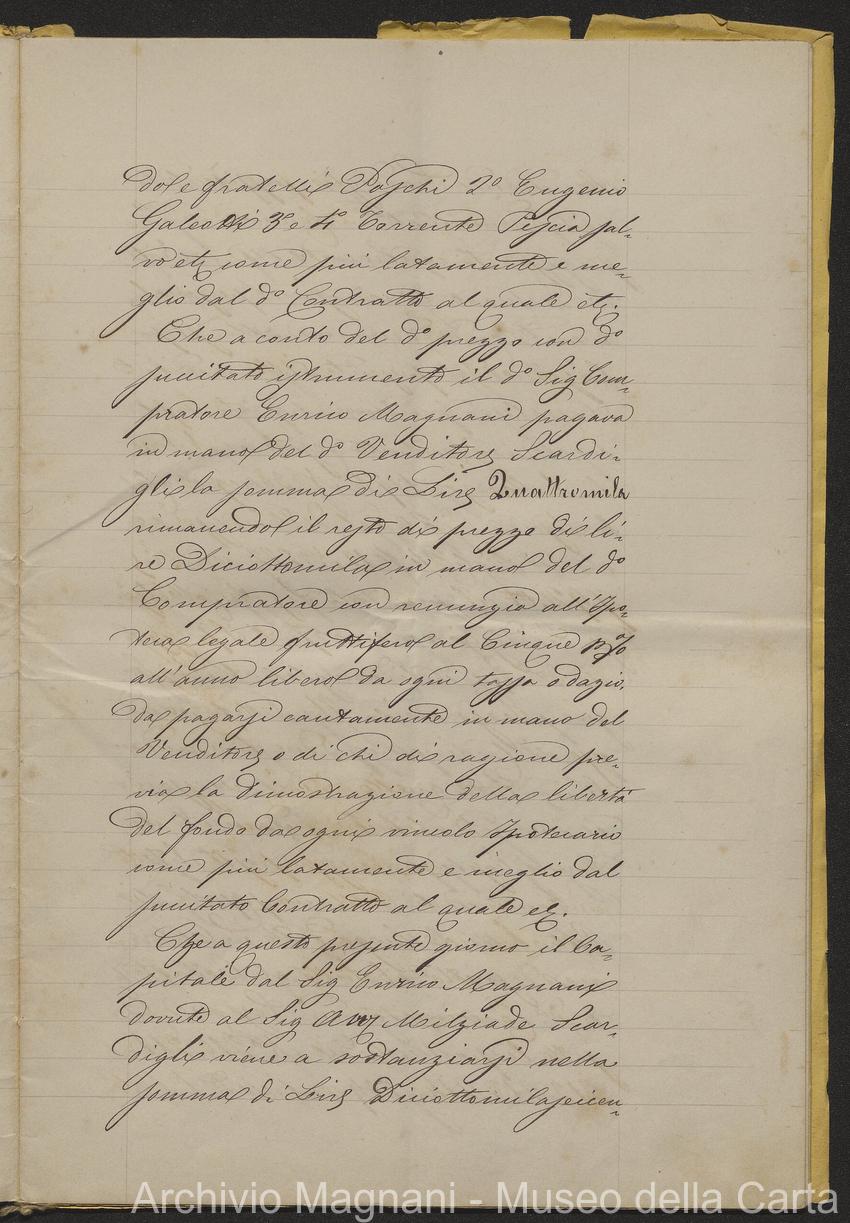 do e fratelli Poschi 2º Eugenio
Galeotti 3º e 4º Torrente Pescia sal=
vo etz come più latamente e me=
glio dal dº Contratto al quale etz.
Che a conto del dº prezzo con dº
succitato istrumento il dº Sig Com=
pratore Enrico Magnani pagava
in mano del dº Venditore Scardi=
gli la somma di Lire Quattromila
rimanendo il resto di prezzo di li=
re Diciottomila in mano del dº
Compratore con renunzia all'Ipo=
teca legale fruttifero al Cinque p%
all'anno libero da ogni tassa o dazio,
da pagarsi cautamente in mano del
Venditore o di chi di ragione pre=
via la dimostrazione della libertà
del fondo da ogni vincolo Ipotecario
come più latamente e meglio dal
succitato Contratto al quale etz.
Che a questo presente giorno il Ca=
pitale dal Sig Enrico Magnani
dovuto al Sig Avv Milziade Scar=
digli viene a sostanziarsi nella
somma di Lire Diciottomilaseicen=
Archivio Magnani - Museo della Carta